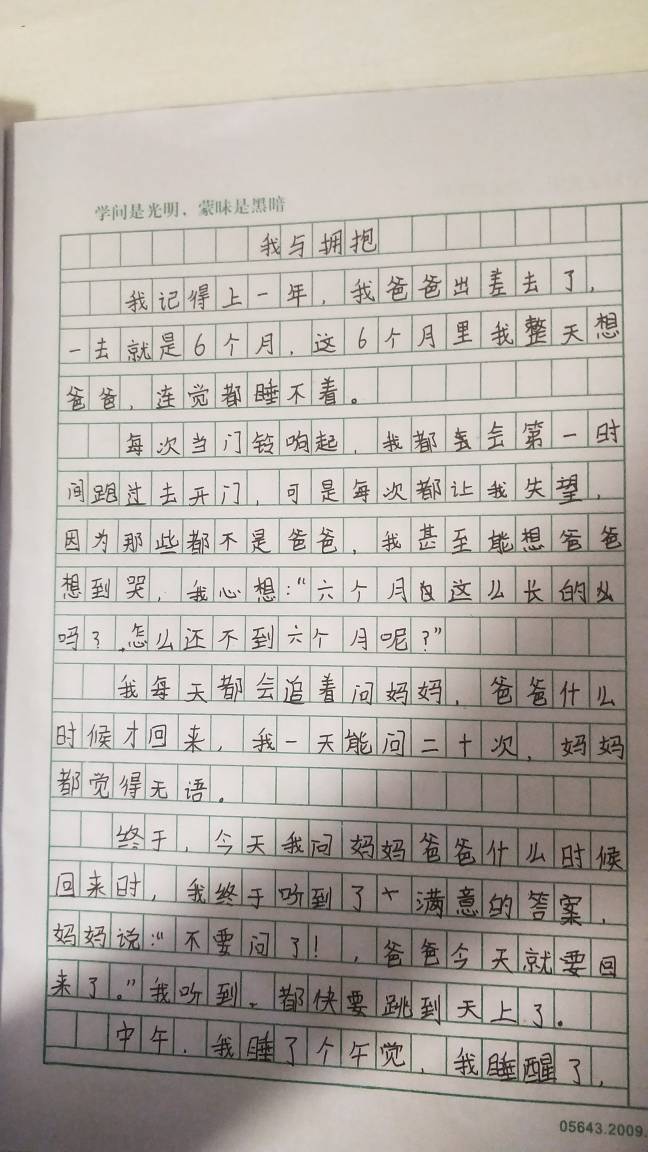 学问是光明，蒙昧是黑暗
我与拥抱
我记得上一年，我爸爸出差去了，
一去就是6个月，这6个月里我整天想
爸爸，连觉都睡不着。
每次当门铃响起，我都会第一时
间跑过去开门，可是每次都让我失望，
因为那些都不是爸爸，我甚至能想爸爸
想到哭，我心想：“六个月这么长的
吗？怎么还不到六个月呢？”
我每天都会追着问妈妈，爸爸什么
时候才回来，我一天能问二十次，妈妈
都觉得无语。
终于，今天我问妈妈爸爸什么时候
回来时，我终于听到了个满意的答案，
妈妈说：“不要问了！，爸爸今天就要回
来了。”我听到、都快要跳到天上了。
中午，我睡了个午觉，我睡醒了，
05643.2009.